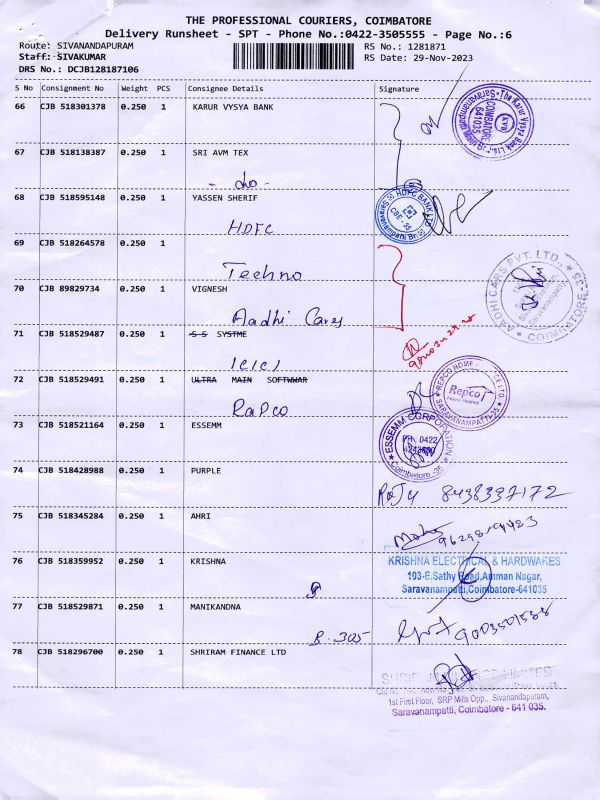 THE PROFESSIONAL COURIERS, COIMBATORE
Delivery Runsheet - SPT - Phone No.:0422-3505555 - Page No.:6
Route: SIVANANDAPURAM
RS No.: 1281871
Staff: SIVAKUMAR
RS Date: 29-Nov-2023
DRS No.: DCJB128187106
S No Consignment No Weight PCS Consignee Details Signature
66 CJB 518301378 0.250 1 KARUR VYSYA BANK
The Karur Vysya Bank Ltd.
KVB
COIMBATORE
641035
67 CJB 518138387 0.250 1 SRI AVM TEX
- do -
68 CJB 518595148 0.250 1 YASSEN SHERIF
HDFC BANK LTD
CBE - 35
Saravanampatti Br.
HDFC
69 CJB 518264578 0.250 1
Techno
70 CJB 89829734 0.250 1 VIGNESH
AADHI CARS PVT. LTD.,
COIMBATORE - 35
Aadhi Cares
71 CJB 518529487 0.250 1 S S SYSTME
ICICI
72 CJB 518529491 0.250 1 ULTRA MAIN SOFTWWAR
REPCO HOME
Repco
Home Finance
SARAVANAMPATTI-35
RapCo
73 CJB 518521164 0.250 1 ESSEMM
ESSEMM CORPORATION
PH : 0422
Coimbatore -35
74 CJB 518428988 0.250 1 PURPLE
Raju 8438337172
75 CJB 518345284 0.250 1 AHRI
76 CJB 518359952 0.250 1 KRISHNA
KRISHNA ELECTRICAL & HARDWARES
103-E, Sathy Road, Amman Nagar,
Saravanampatti, Coimbatore-641035
77 CJB 518529871 0.250 1 MANIKANDNA
B. 305
78 CJB 518296700 0.250 1 SHRIRAM FINANCE LTD
1st First Floor, SRP Mills Opp., Sivanandapuram,
Saravanampatti, Coimbatore - 641 035.